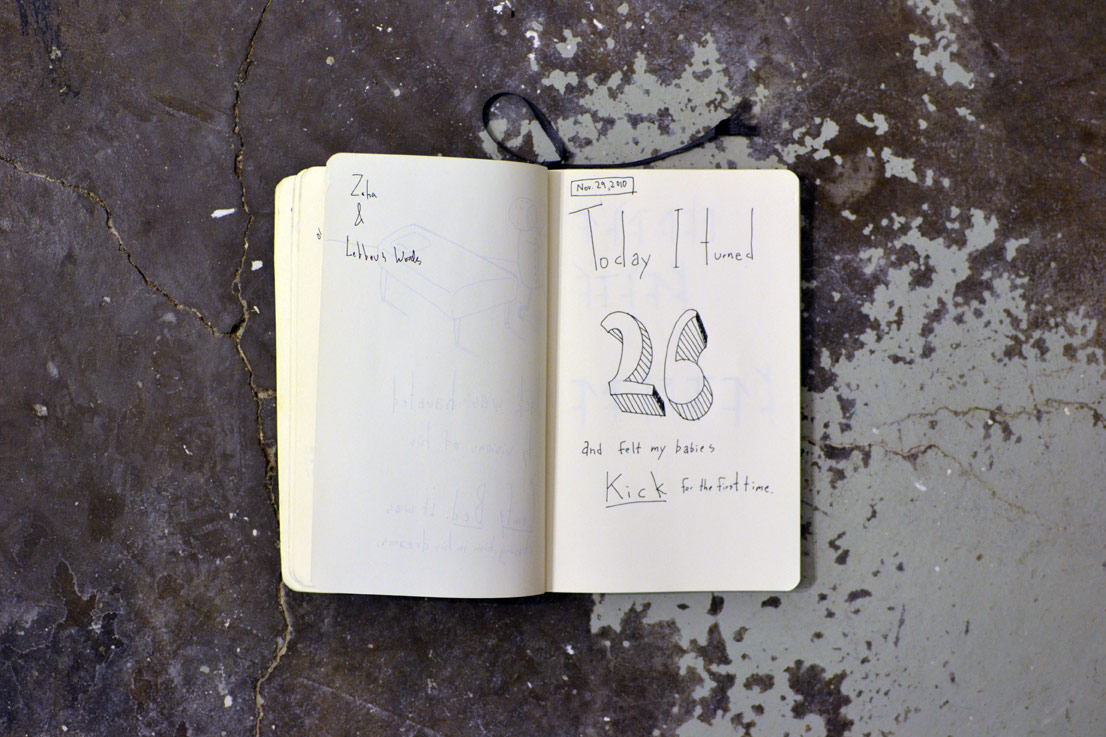 Zaha
&
Lebbeus Woods
Nov. 29, 2010
Today I turned
26
and felt my babies
Kick for the first time.